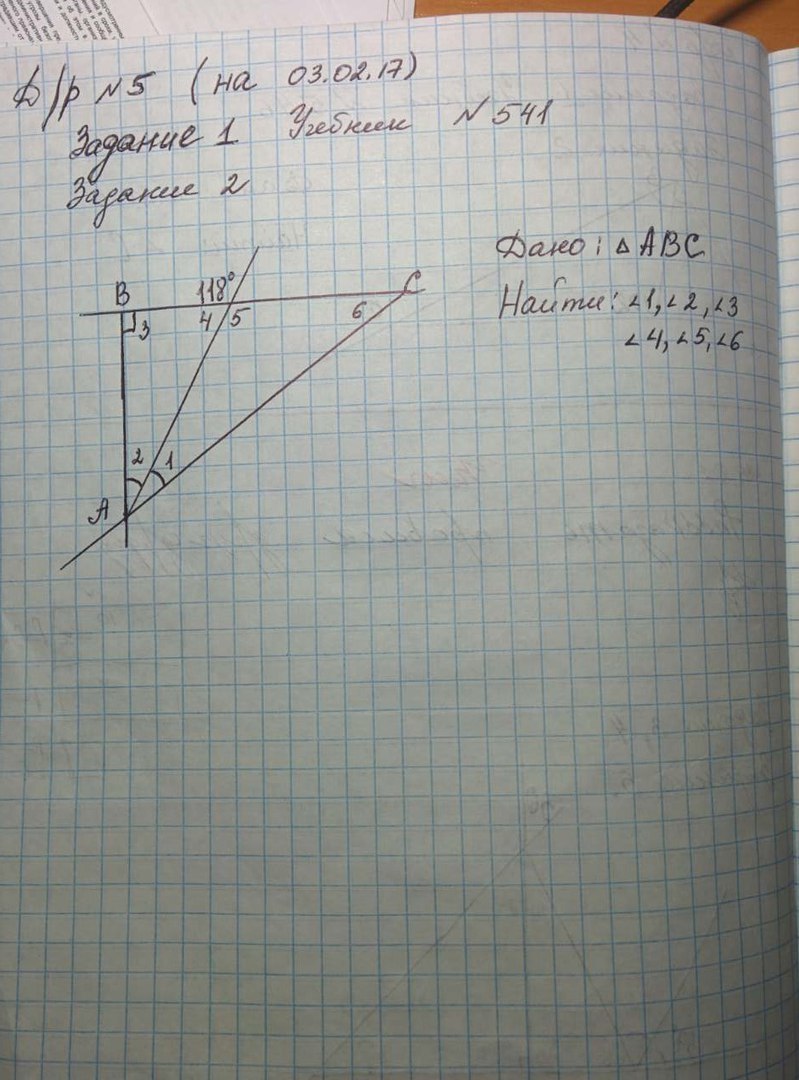 Д/р №5 (на 03.02.17)
Задание 1 Учебник №541
Задание 2
Дано: △ABC
Найти: ∠1, ∠2, ∠3
∠4, ∠5, ∠6
B 118° C
3 4 5 6
2 1
A